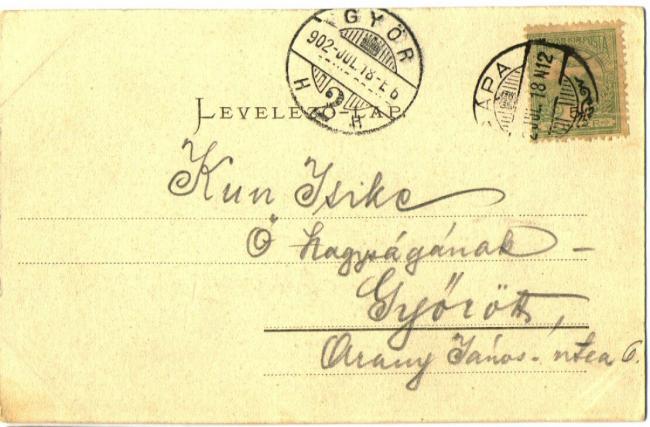 GYŐR
902-JUL.18-E6
H H
PÁPA
JUL 18 N12
LEVELEZŐ-LAP.
Kun Isike
Ő Nagyságának –
Győrött,
Arany János-utca 6.